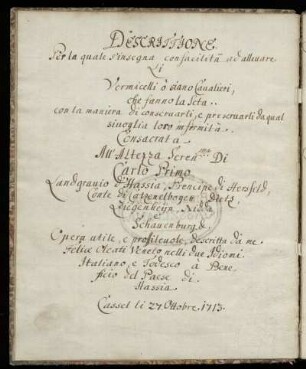 DESCRITTIONE
Per la quale s'insegna con facilità ad alleuare
Li
Vermicelli ò siano Caualieri,
che fanno la Seta.
con la maniera di conseruarli, e preseruarli da qual
siuoglia loro infermità.
Consacrata
All' Altezza Seren.ma Di
Carlo Primo
Landgrauio d'Hassia, Prencipe di Hersfeld,
Conte di Catzenelbogen, Dietz,
Ziegenheijn, Nidda
e
Schauenburg.
Opera utile, e profiteuole, descritta da me
Felice Veneto nelli due Idiomi.
Italiano, e Todesco à Bene,
ficio del Paese di
Hassia.
Cassel li 27 Ottobre, 1713.